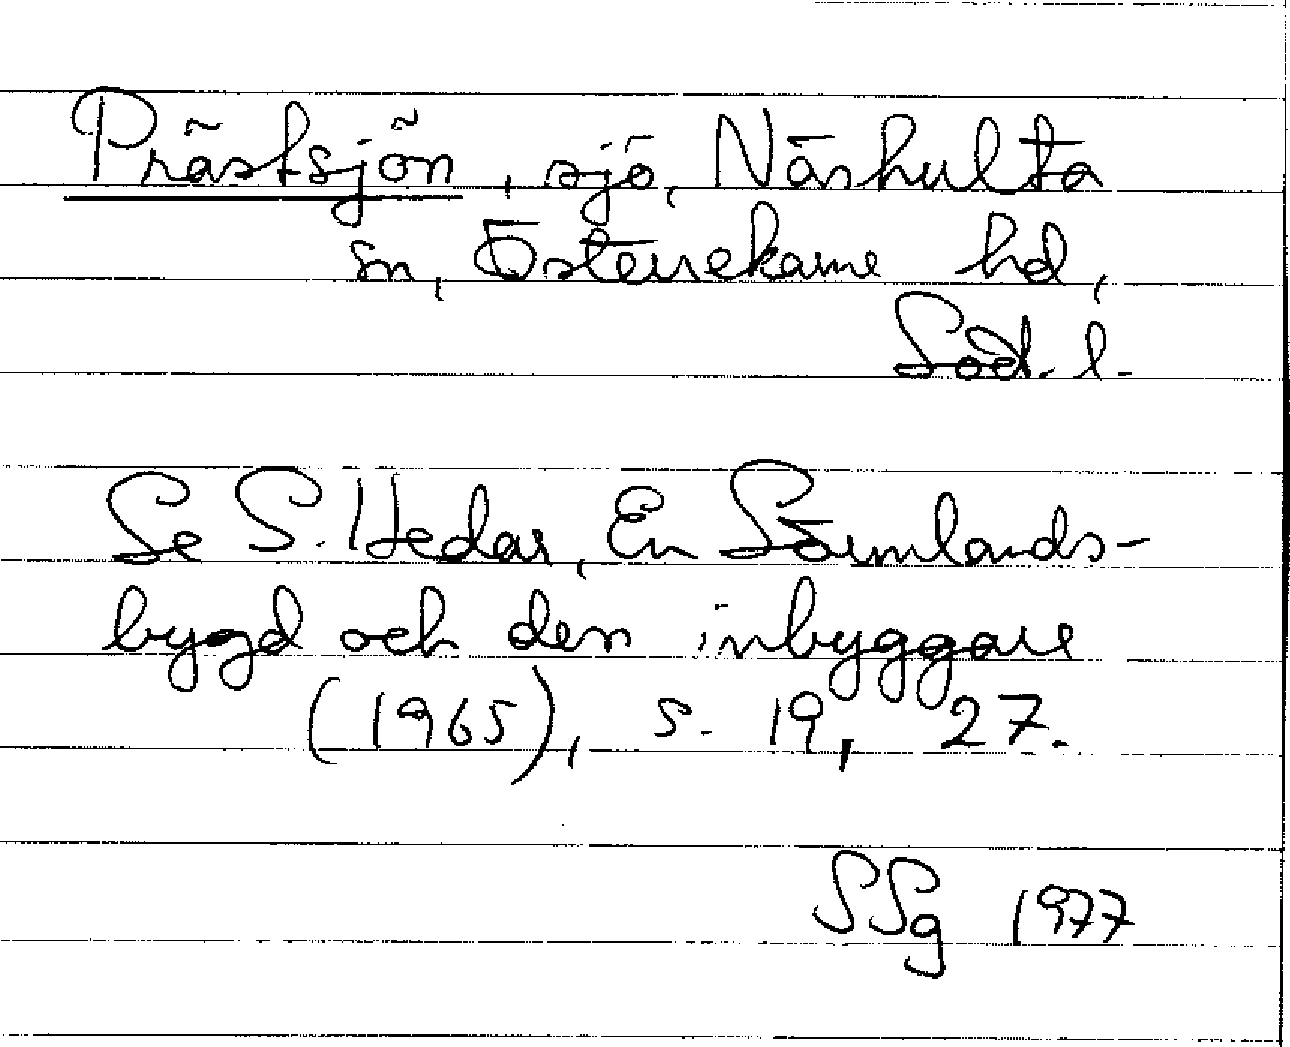 Prästsjön, sjö, Näshulta
sn, Österrekarne hd,
Söd. l.
Se S. Hedar, En Sörmlands-
bygd och dess inbyggare
(1965), s. 19, 27.
SSg 1977